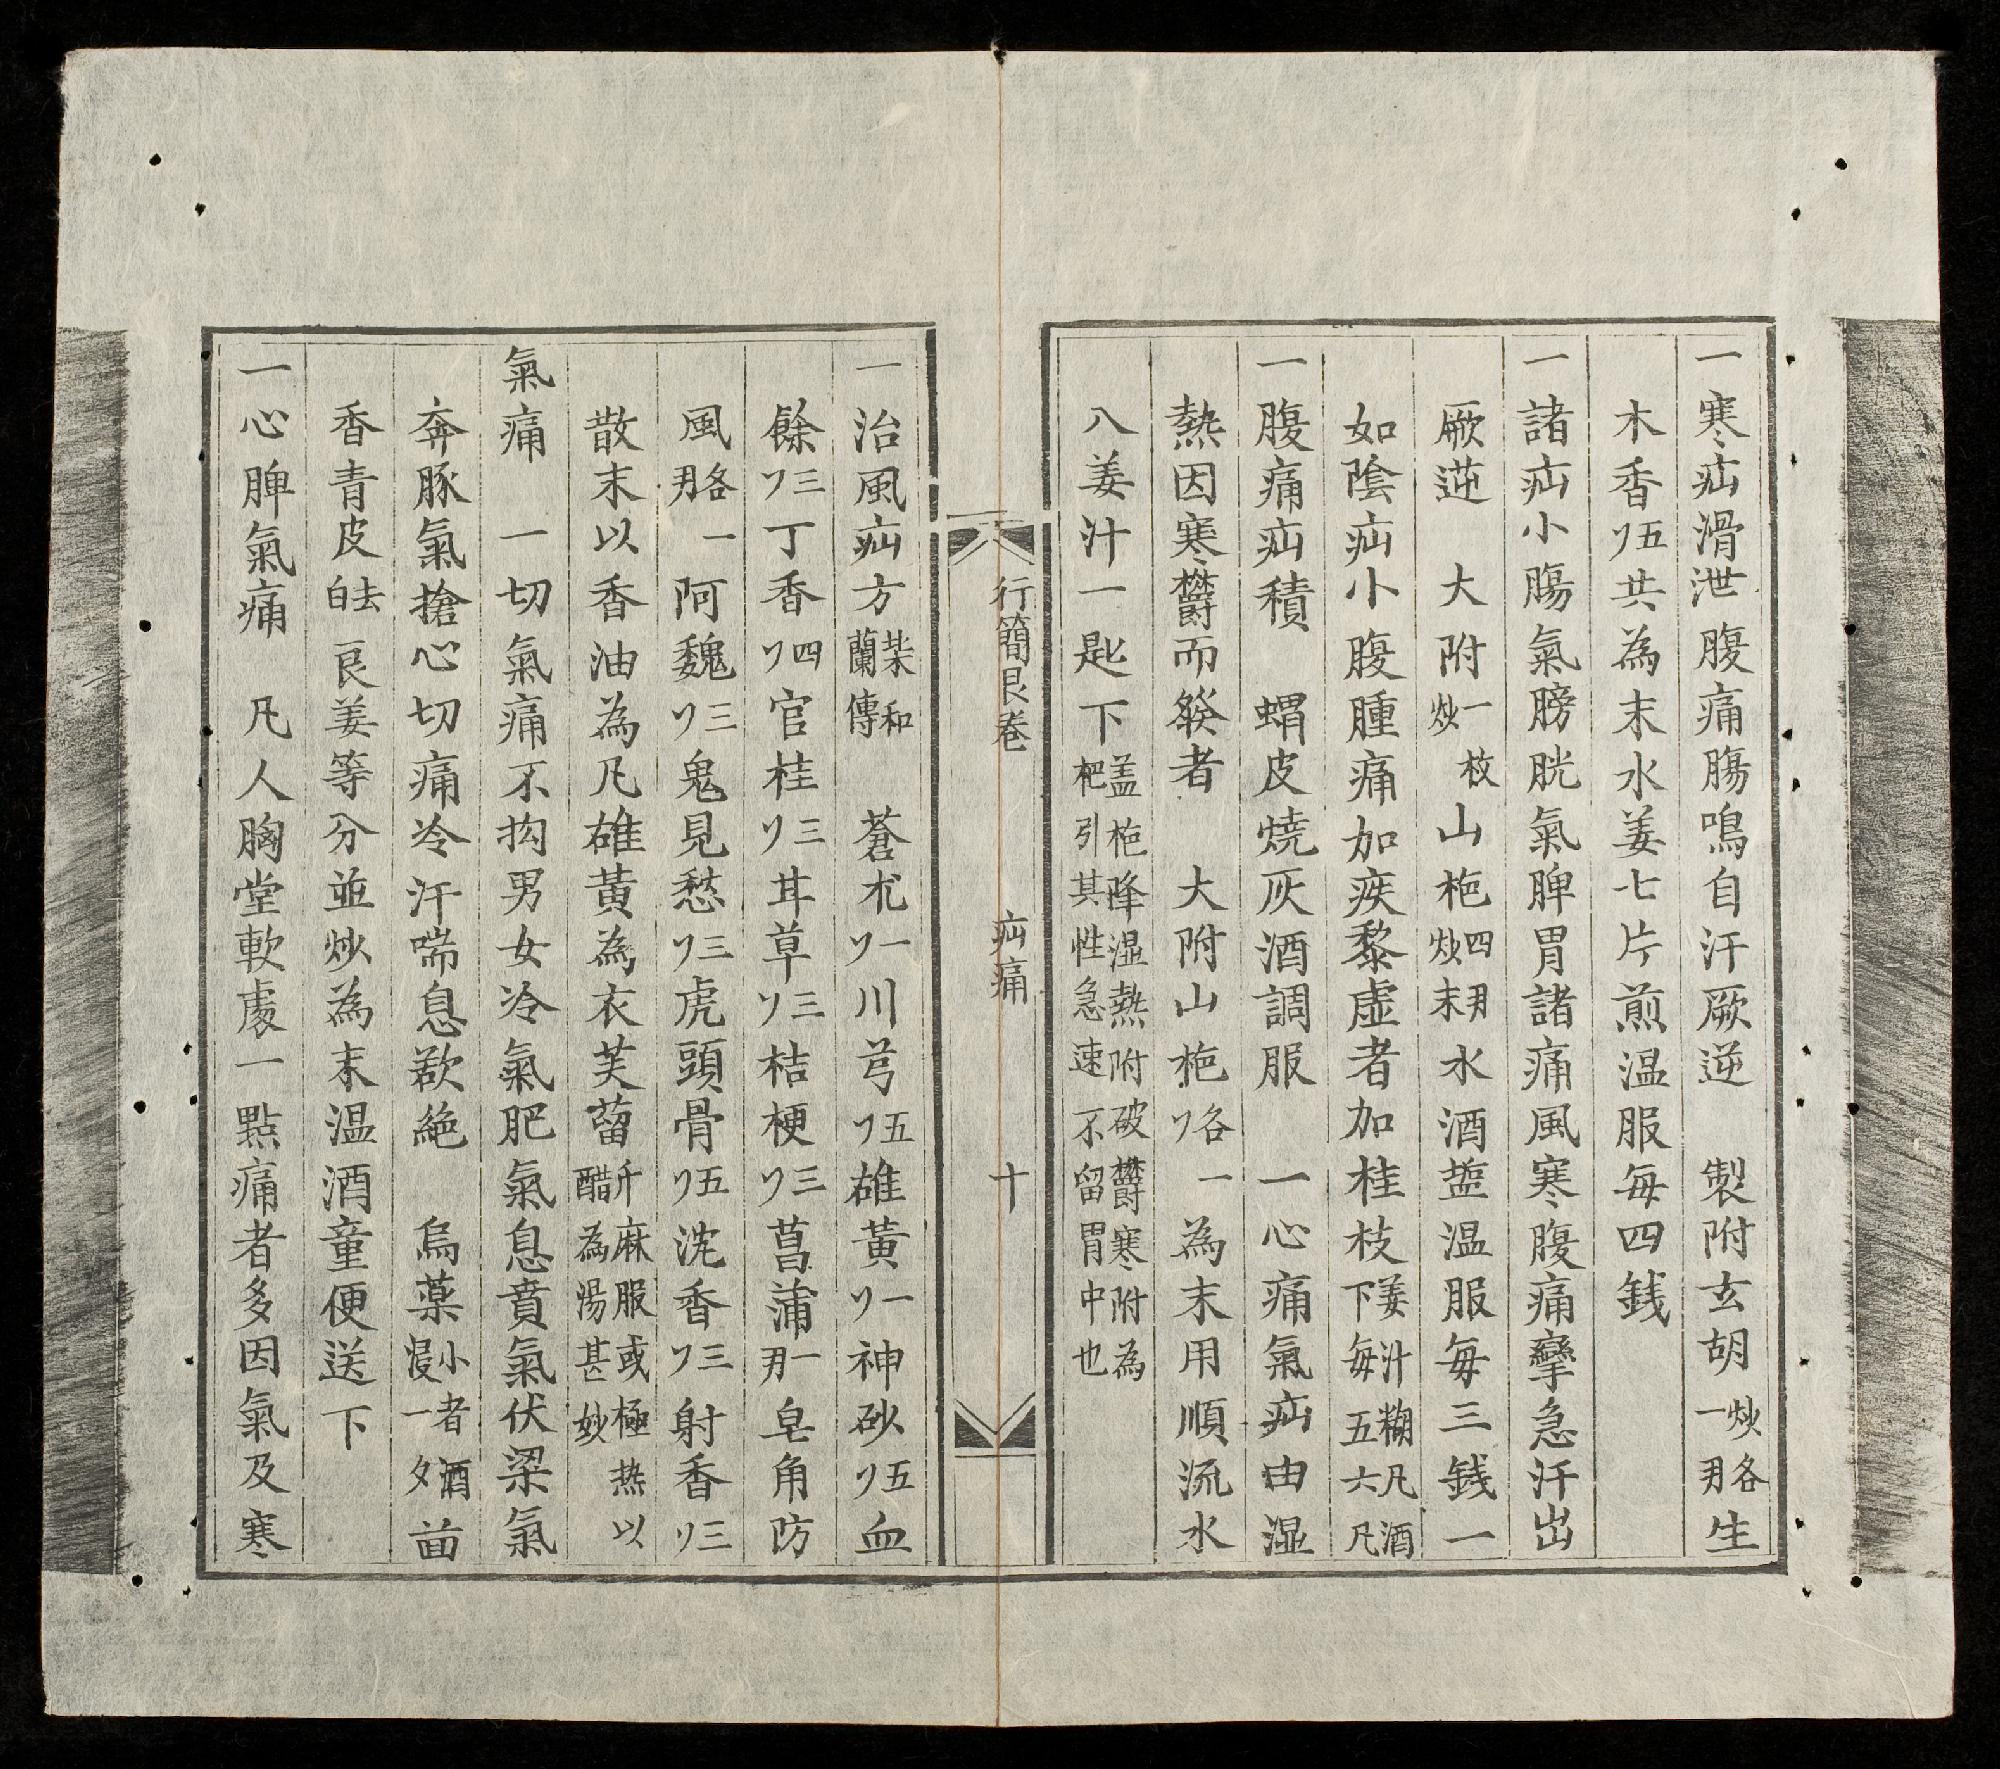 一寒疝滑泄腹痛腸鳴自汗厥逆　製附玄胡炒各一刄生
木香ﾘ五共為末水姜七片煎温服每四銭
一諸疝小腸氣膀胱氣脾胃諸痛風寒腹痛攣急汗出
厥逆　大附一枚炒山梔四刄炒末水酒塩温服每三銭一
如陰疝小腹腫痛加疾黎虛者加桂枝姜汁糊凡酒下每五六凡
一腹痛疝積　蝟皮燒灰酒調服　一心痛氣疝由湿
熱因寒欝而發者　大附山梔各ﾘ一為末用順流水
八姜汁一匙下盖梔降湿熱附破欝寒附為杷引其性急速不留胃中也
行簡艮卷　疝痛　十
一治風疝方柴和蘭傳　蒼朮一ﾘ川芎五ﾘ雄黃一ﾘ神砂五ﾘ血
餘三ﾘ丁香四ﾘ官桂三ﾘ甘草三ﾘ桔梗三ﾘ菖蒲一刄皂角防
風各刄一阿魏三ﾘ鬼見愁三ﾘ虎頭骨五ﾘ沈香三ﾘ射香三ﾘ
散末以香油為凡雄黃為衣芙蒥千麻服或極热以醋為湯甚妙
氣痛　一切氣痛不拘男女冷氣肥氣息賁氣伏梁氣
奔豚氣搶心切痛冷汗喘息欲絶　烏藥小者酒浸一夕茴
香青皮去白良姜等分並炒為末温酒童便送下
一心脾氣痛　凡人胸堂軟處一點痛者多因氣及寒